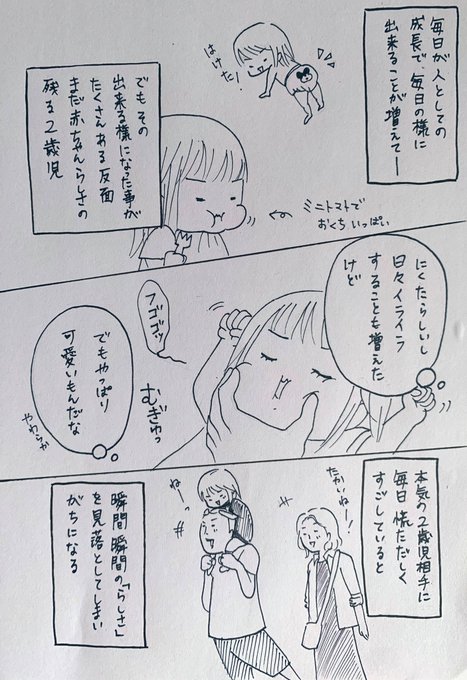 毎日が人としての
成長で、毎日の様に
出来ることが
増えてー
はけた!
でもその
出来る様になった事が
たくさんある反面
まだ赤ちゃんらしさの
残る2歳児
ミニトマトで
おくちいっぱい
にくたらしいし
日々イライラ
することも増えた
けど
フゴゴッ
むぎゅっ
でもやっぱり
可愛いもんだな
やわらか
本気の2歳児相手に
毎日慌ただしく
すごしていると
たかいねー!
ねーっ
瞬間瞬間の「らしさ」
を見落としてしまい
がちになる